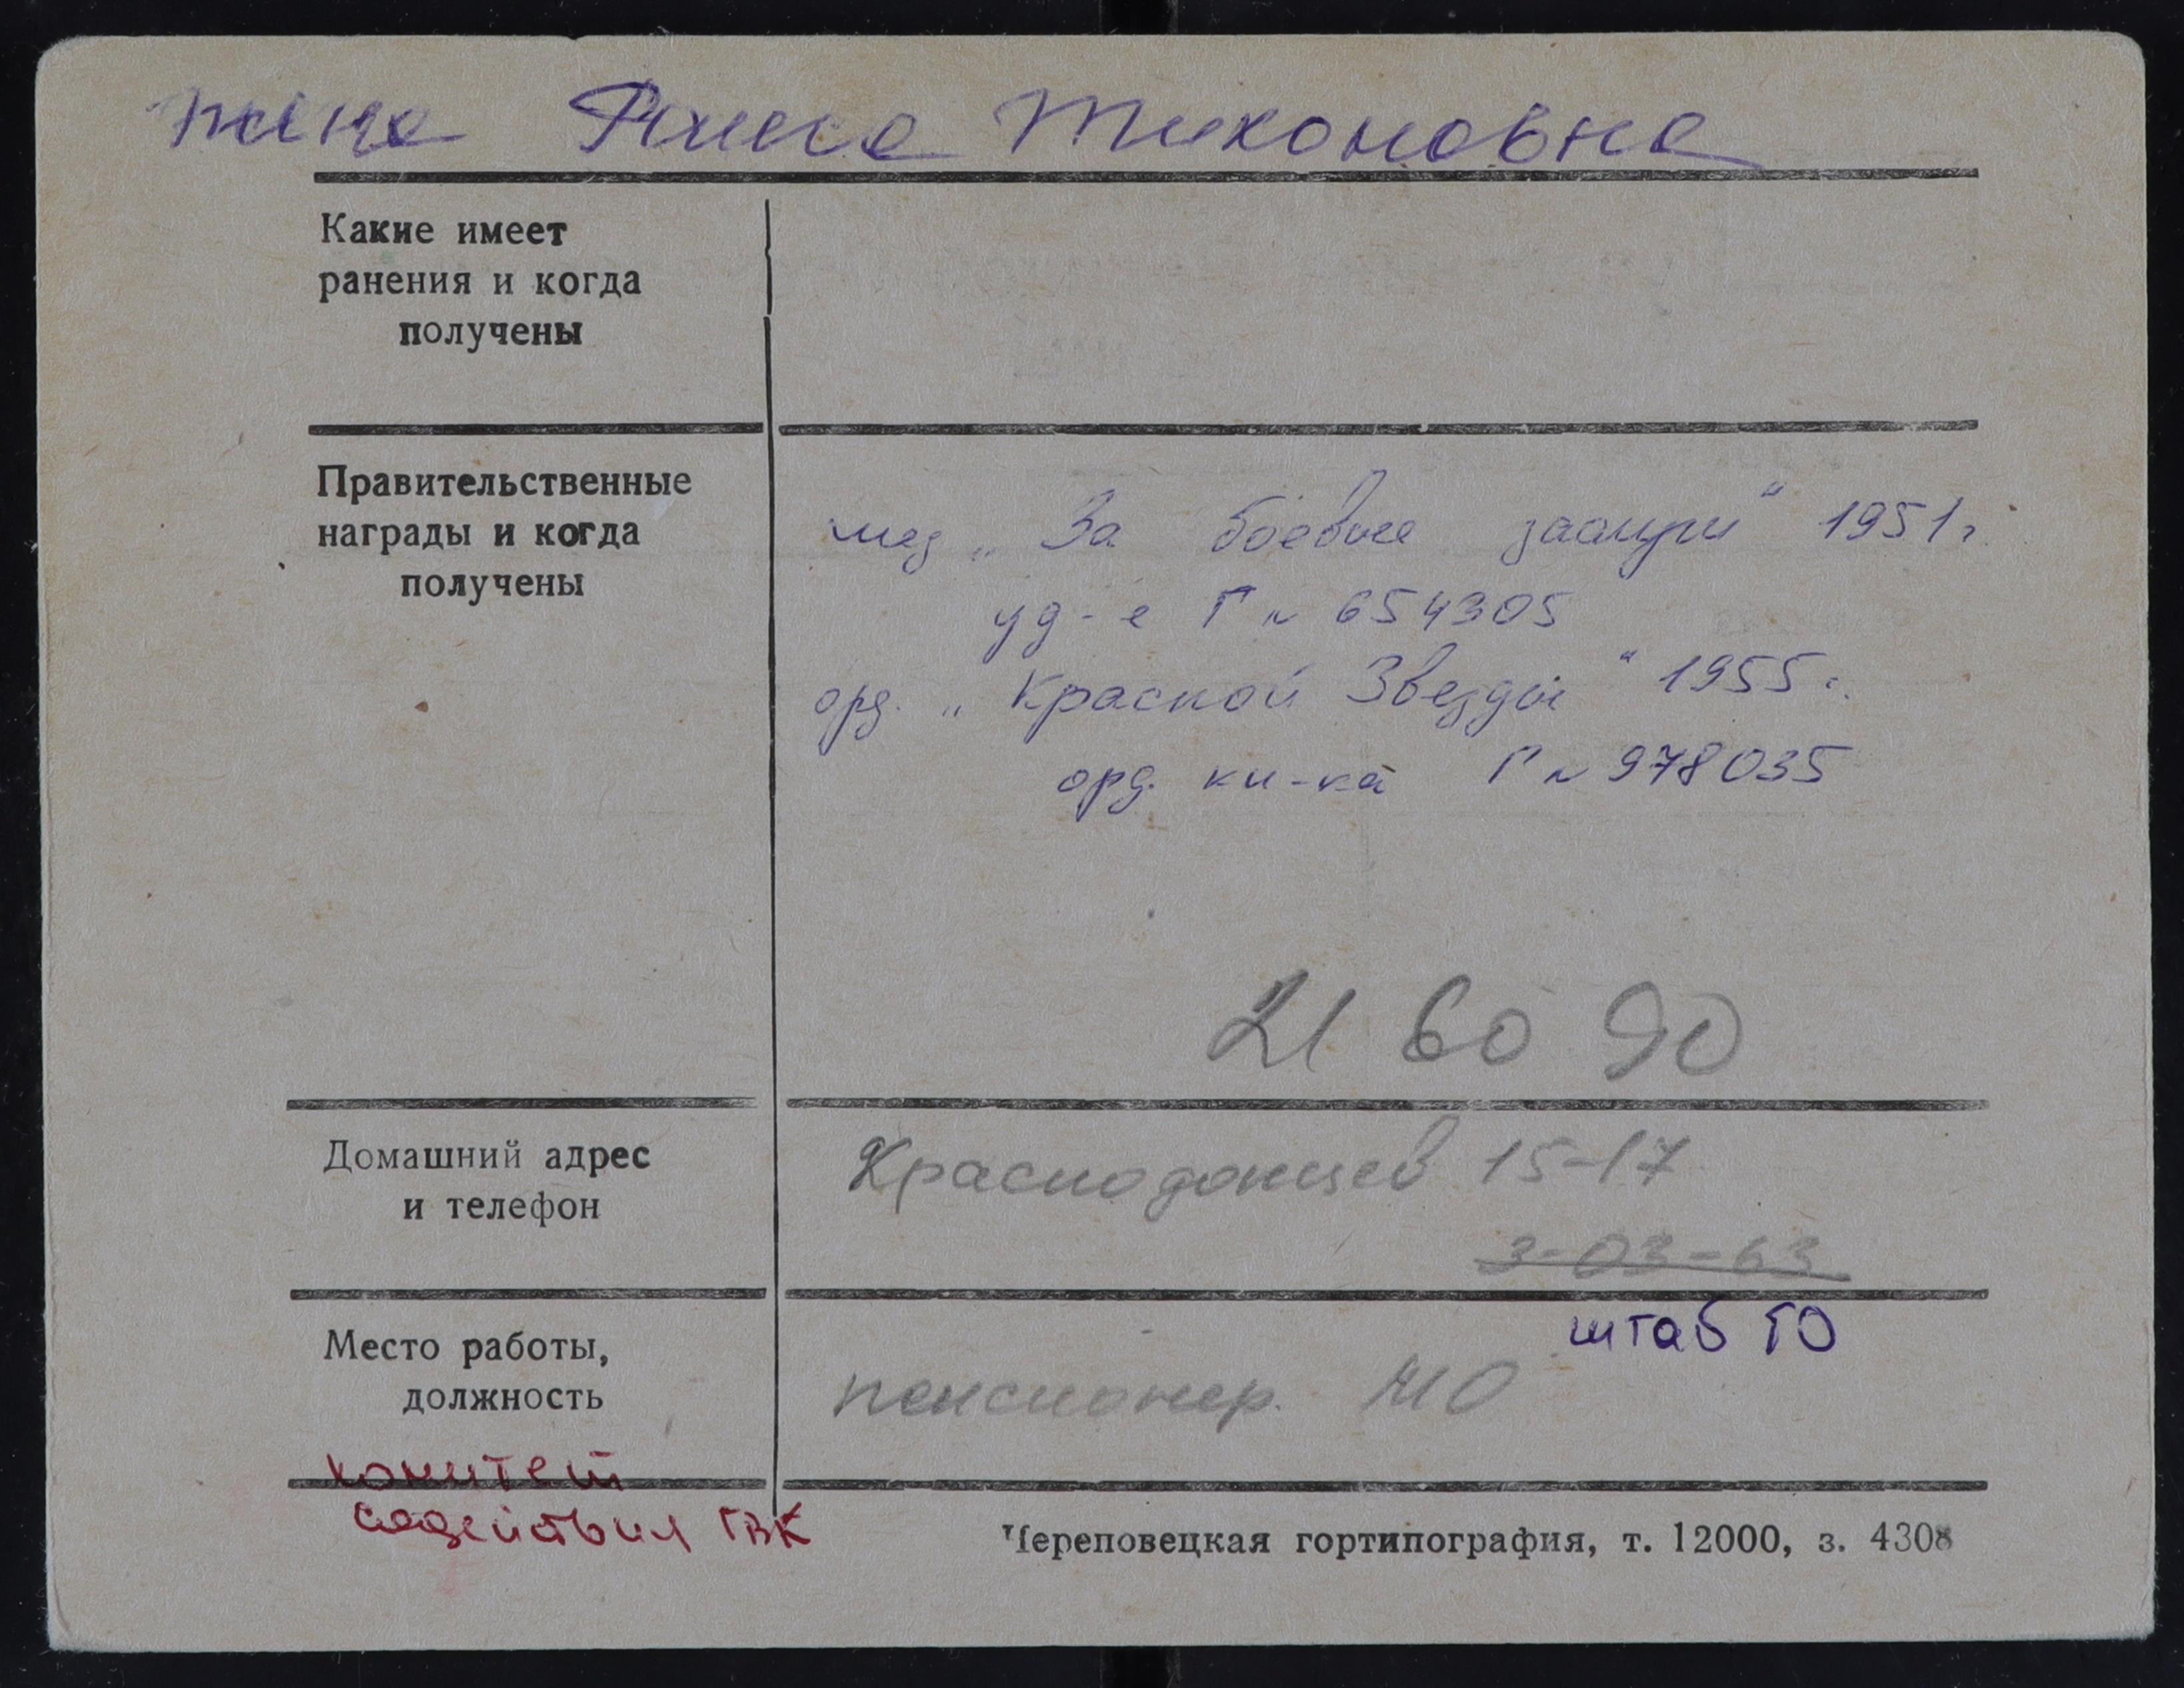 жена Раиса Тихоновна
Какие имеет
ранения и когда
получены
Правительственные
награды и когда
получены
мед „За боевые заслуги" 1951 г.
уд-е Г № 654305
орд. „Красной Звезды" 1955 г.
орд. кн-ка Г № 978035
21 60 90
Домашний адрес
и телефон
Краснодонцев 15-17
3-03-63
Место работы,
должность
штаб ГО
пенсионер. МО
комитет
содействия ГВК
Череповецкая гортипография, т. 12000, з. 4308